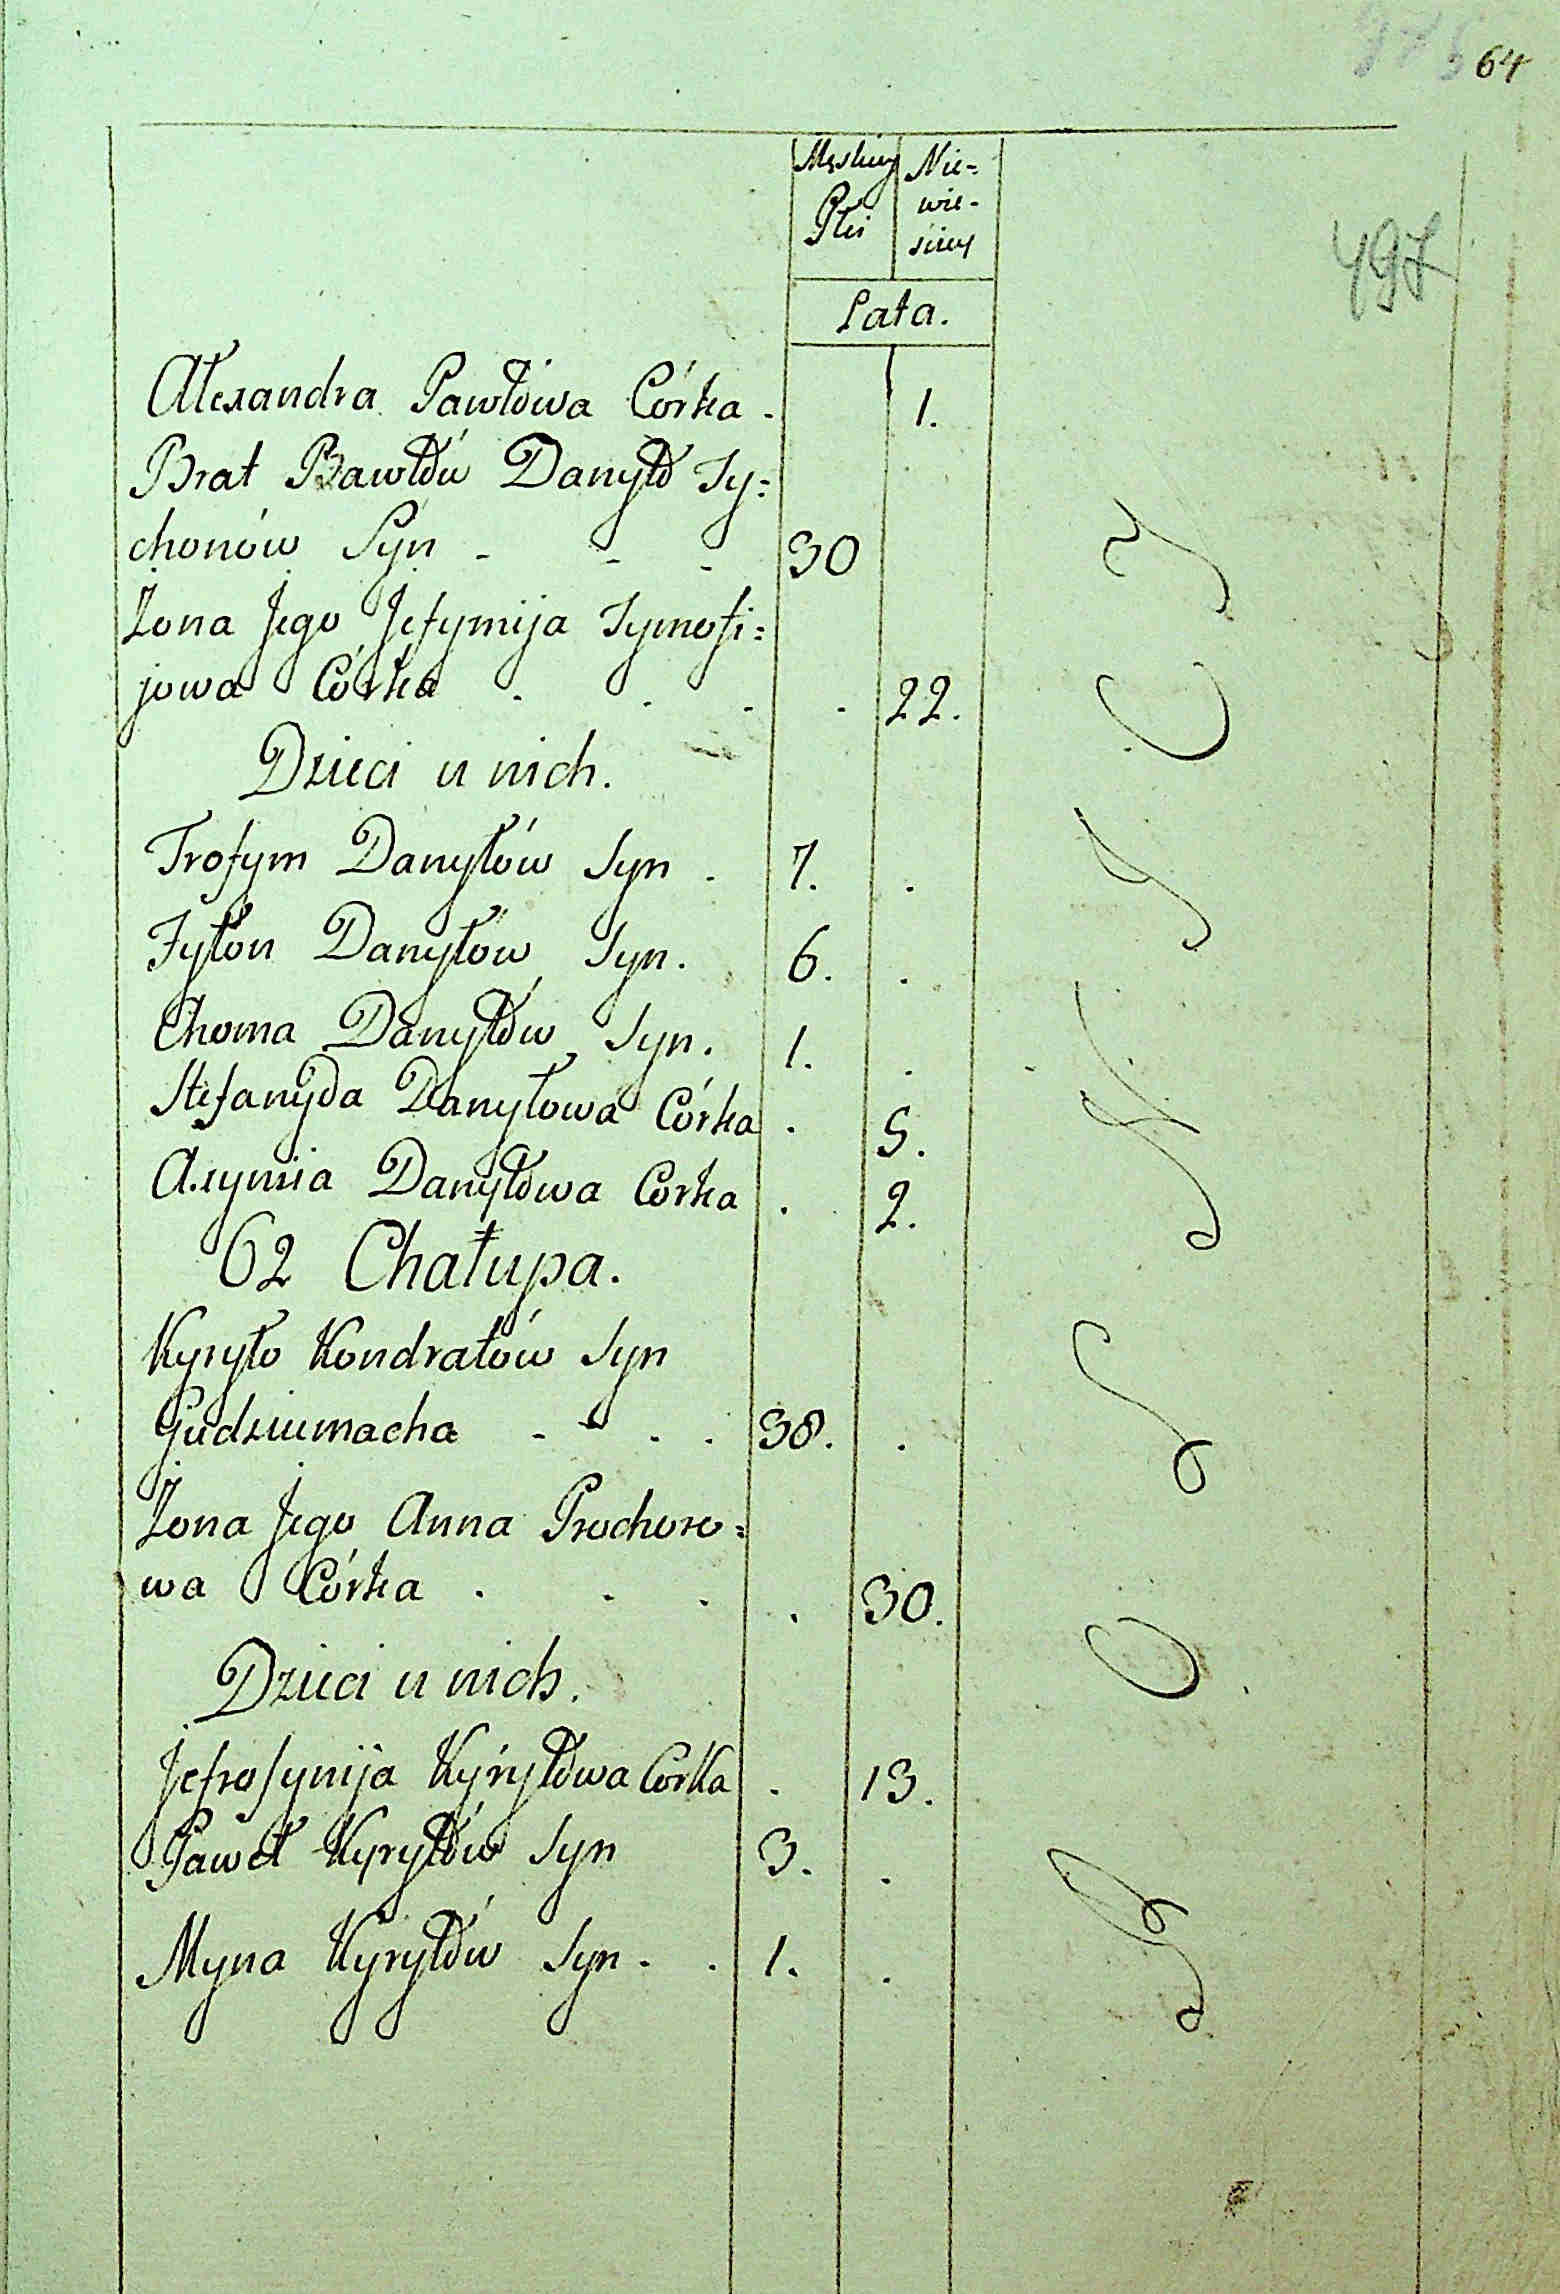 64
Męskiey Płci
Nie=
wie-
sciey
497
Lata.
Ałexandra Pawłówa Córka - 1.
Brat Pawłów Danyło Ty=
chonów Syn - - - 30
Żona Jego Jefymija Tymofi=
jowa Córka - . - . 22.
Dzieci u nich.
Trofym Danyłów Syn . 7. .
Fyłon Danyłów Syn. 6. .
Choma Danyłów Syn. 1. .
Stefanyda Danyłowa Córka . 5.
Axynia Danyłówa Corka . 2.
62 Chałupa.
Kyryło Kondratów Syn
Gudziumacha - - . . 38. .
Żona Jego Anna Prochoro=
wa Córka . . . . 30.
Dzieci u nich.
Jefrosynija Kyryłówa Corka . 13.
Paweł Kyryłów Syn 3. .
Myna Kyryłów Syn . . 1. .